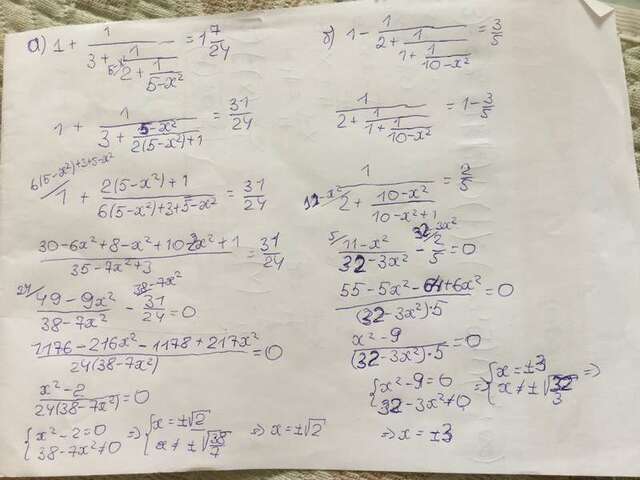 а) 1 + 1/(3 + 1/(2 + 1/(5-x²))) = 1 7/24
1 + 1/(3 + (5-x²)/(2(5-x²)+1)) = 31/24
6(5-x²)+3+5-x²/ 1 + (2(5-x²)+1)/(6(5-x²)+3+5-x²) = 31/24
(30-6x²+8-x²+10-2x²+1)/(35-7x²+3) = 31/24
24/ (49-9x²)/(38-7x²) - 38-7x²/ 31/24 = 0
(1176-216x²-1178+217x²)/(24(38-7x²)) = 0
(x²-2)/(24(38-7x²)) = 0
{x²-2=0 38-7x²≠0 ⇒ {x=±√2 x≠±√(38/7) ⇒ x=±√2
б) 1 - 1/(2 + 1/(1 + 1/(10-x²))) = 3/5
1/(2 + 1/(1 + 1/(10-x²))) = 1 - 3/5
11-x²/ 1/(2 + (10-x²)/(10-x²+1)) = 2/5
5/ (11-x²)/(32-3x²) 32-3x²/ 2/5 = 0
(55-5x²-64+6x²)/((32-3x²)·5) = 0
(x²-9)/((32-3x²)·5) = 0
{x²-9=0 32-3x²≠0 ⇒ {x=±3 x≠±√(32/3) ⇒
⇒ x=±3